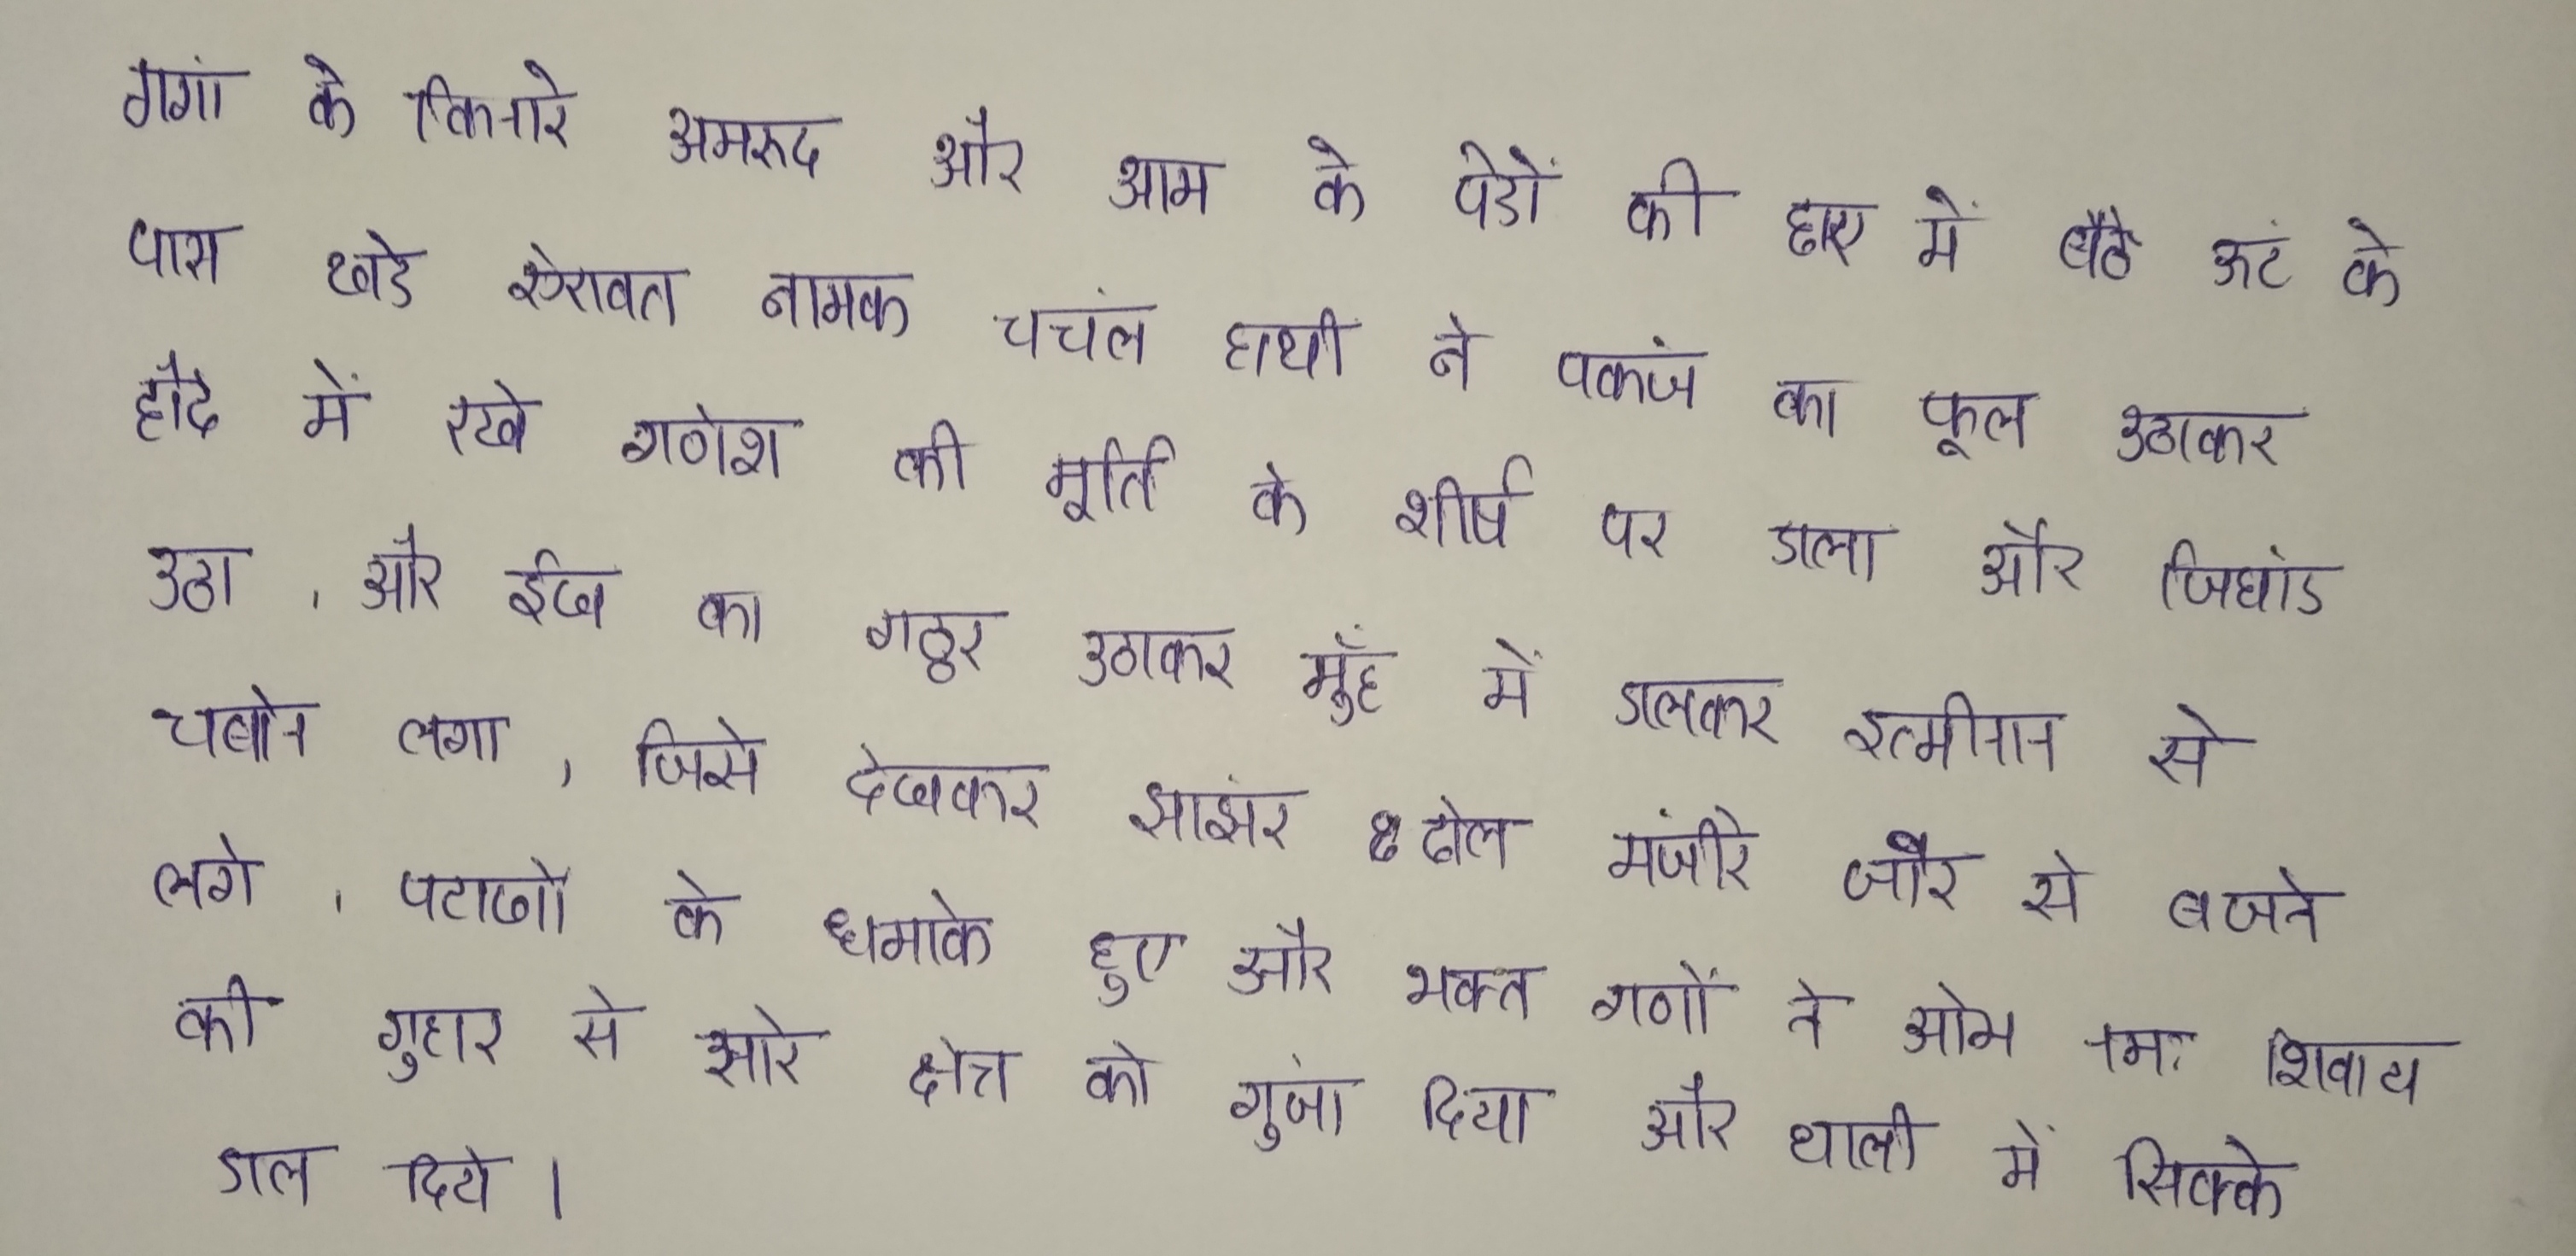 गगां के किनारे अमरुद और आम के पेडों की छाए में बैठे ऊटं के
पास खडे ऐरावत नामक चचंल हाथी ने पकजं का फूल उठाकर
हौदे में रखे गणेश की मूर्ति के शीर्ष पर डाला और चिघांड
उठा , और ईख का गठ्ठर उठाकर मुँह में डालकर इत्मीनान से
चबाने लगा , जिसे देखकर झाझंर ढोल मंजीरे जोर से बजने
लगे , पटाखों के धमाके हुए और भक्त गणों ने ओम नमः शिवाय
की गुहार से सारे क्षेत्र को गुजां दिया और थाली में सिक्के
डाल दिये ।